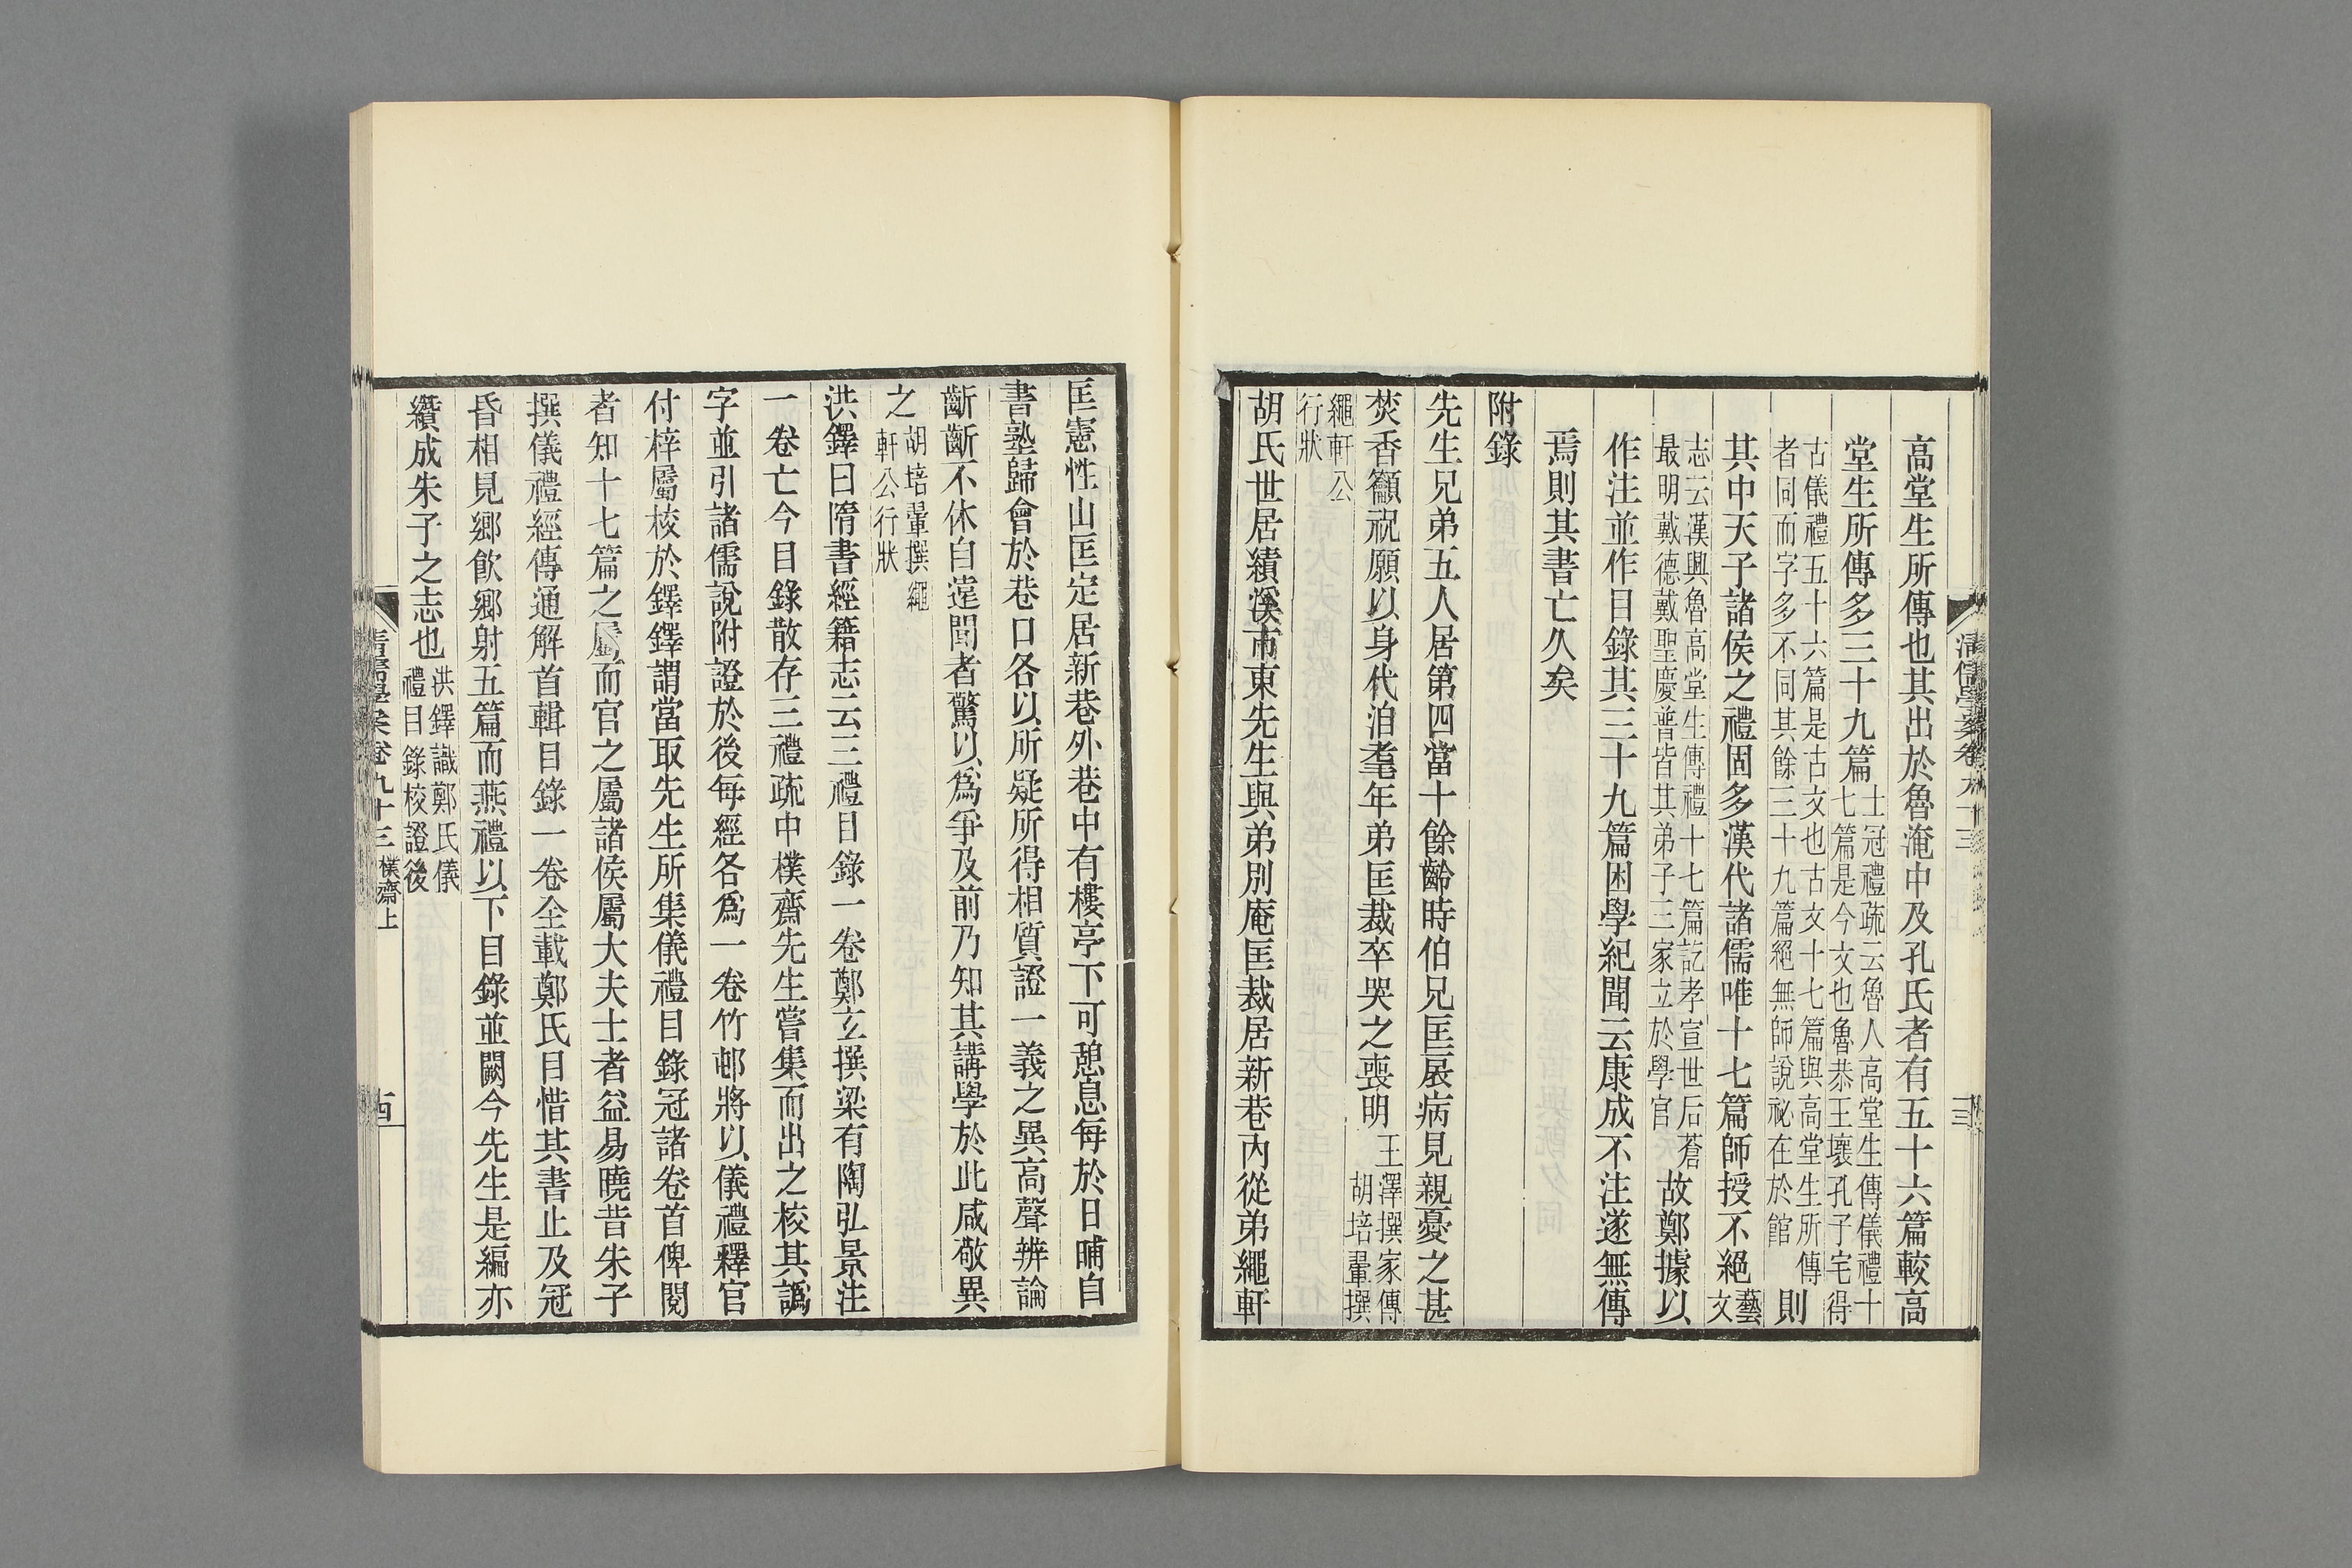 高堂生所傳也其出於魯淹中及孔氏者有五十六篇較高
堂生所傳多三十九篇士冠禮疏云魯人高堂生傳儀禮十七篇是今文也魯恭王壞孔子宅得
古儀禮五十六篇是古文也古文十七篇與高堂生所傳者同而字多不同其餘三十九篇絕無師說祕在於館則
其中天子諸侯之禮固多漢代諸儒唯十七篇師授不絕藝文
志云漢興魯高堂生傳禮十七篇訖孝宣世后蒼最明戴德戴聖慶普皆其弟子三家立於學官故鄭據以
作注並作目錄其三十九篇困學紀聞云康成不注遂無傳
焉則其書亡久矣
附錄
先生兄弟五人居第四當十餘齡時伯兄匡扆病見親憂之甚
焚香籲祝願以身代洎耄年弟匡裁卒哭之喪明王澤撰家傳胡培翬撰
繩軒公行狀
胡氏世居績溪市東先生與弟別庵匡裁居新巷內從弟繩軒
清儒學案卷九十三
十三
匡憲性山匡定居新巷外巷中有樓亭下可憩息每於日晡自
書塾歸會於巷口各以所疑所得相質證一義之異高聲辨論
齗齗不休自遠聞者驚以爲爭及前乃知其講學於此咸敬異
之胡培翬撰繩軒公行狀
洪鐸曰隋書經籍志云三禮目錄一卷鄭玄撰梁有陶弘景注
一卷亡今目錄散存三禮疏中樸齋先生嘗集而出之校其譌
字並引諸儒說附證於後每經各爲一卷竹邨將以儀禮釋官
付梓屬校於鐸鐸謂當取先生所集儀禮目錄冠諸卷首俾閱
者知十七篇之屬而官之屬諸侯屬大夫士者益易曉昔朱子
撰儀禮經傳通解首輯目錄一卷全載鄭氏目惜其書止及冠
昏相見鄉飲鄉射五篇而燕禮以下目錄並闕今先生是編亦
纘成朱子之志也洪鐸識鄭氏儀禮目錄校證後
清儒學案卷九十三 樸齋上
十四